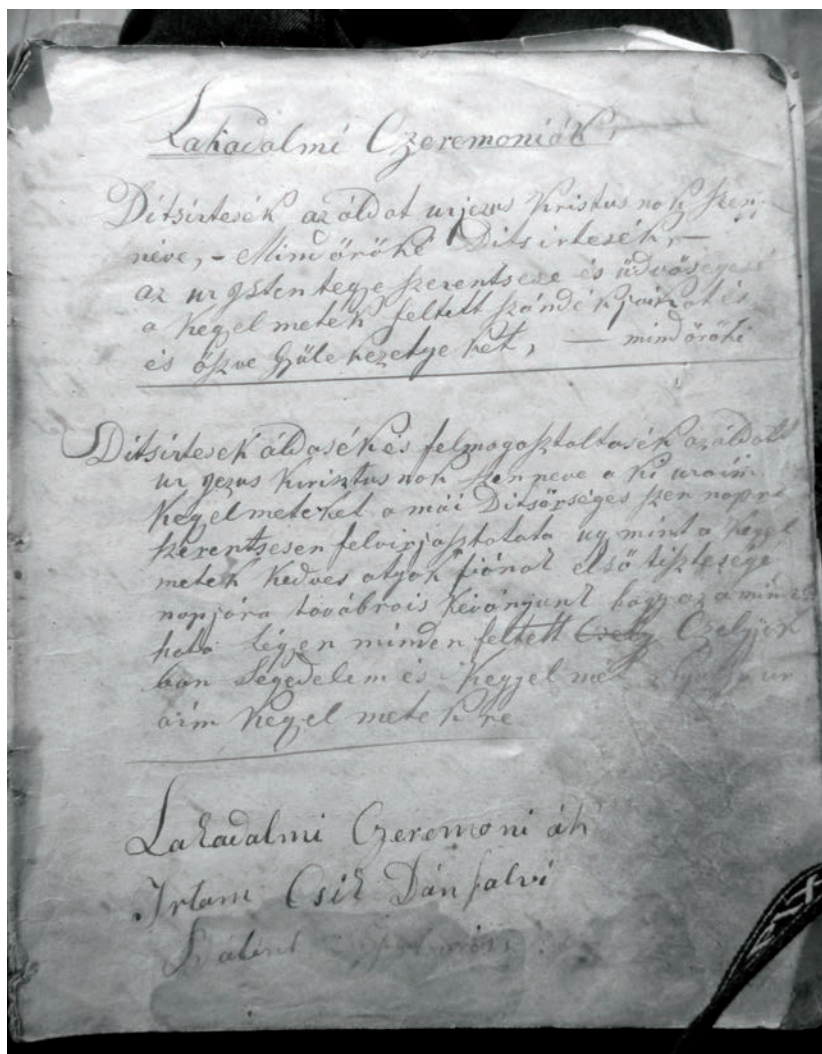 Lakadalmi Czeremoniák,
Ditsirtesék az áldot urjezus Kristus nak szen
néve, - Mind örökké Ditsirtesék, -
az ur Isten tegye szerentsese és üdvőségesé
a Kegyelmetek feltett szándékjaikat és
és öszve Gyülekezetyeket, — mind öröké
Ditsirtesek áldasék és felmagasztaltasék az áldot
ur jezus Kirisztus nak szen neve a ki uraim
Kegyelmeteket a mái Ditsőrséges szen napra
szerentsesen felvirjasztotata ug mint a Kegyel
metek Kedves atyok fiának első tisztesége
napjára továbrais kévánjunk hogy az a mind
ható légyen minden feltett Czélyok
ban Segedelem és Keggyel me
aim Kegyel metek re
Lakadalmi Czeremoni ák
Irtam Csik Dánfalvi
Bálint